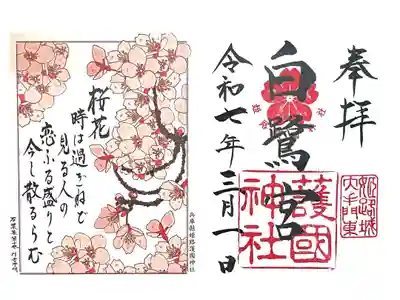 奉拝
姫路城
大手門東
白鷺宮
護國
神社
令和七年三月一日
兵庫縣姫路護國神社
桜花
時は過ぎねど
見る人の
恋ふる盛りと
今し散るらむ